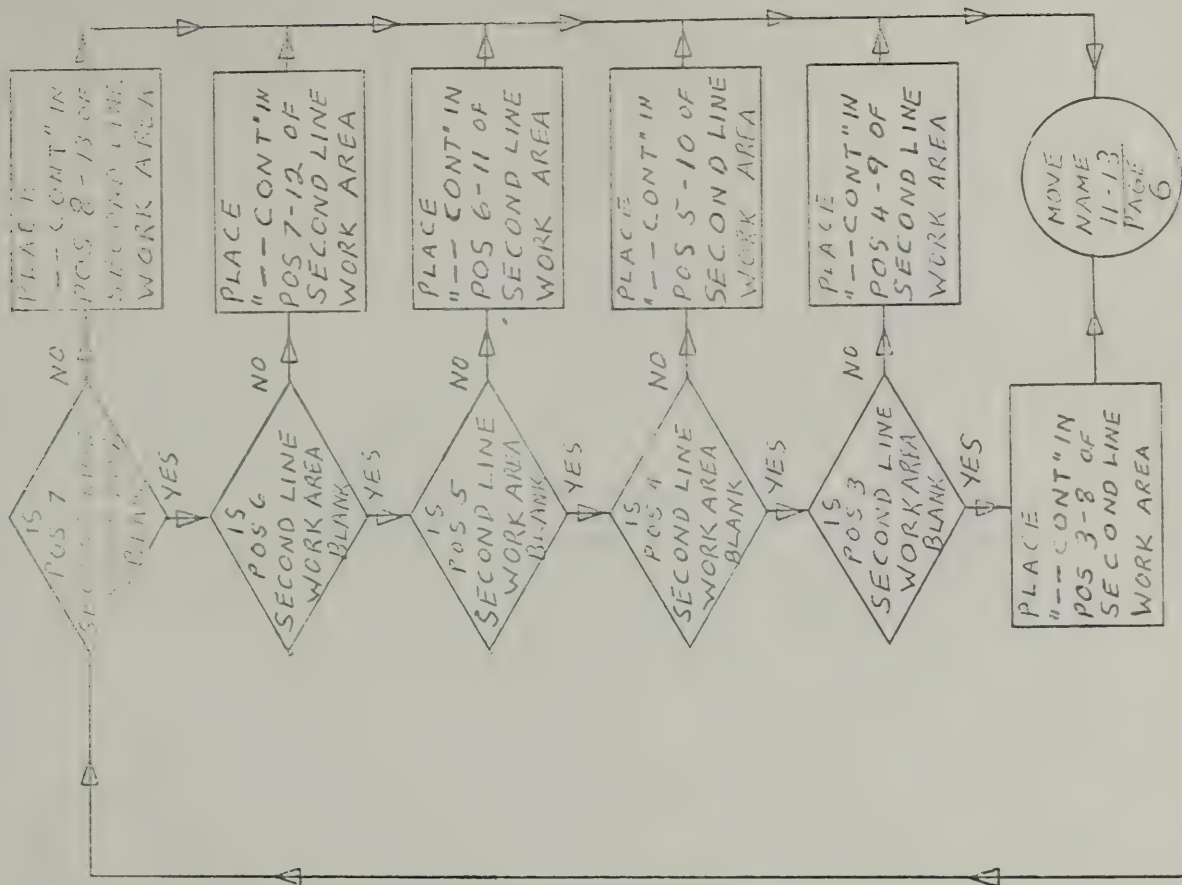 IS
POS 7
NO
PLACE
"--CONT" IN
POS 8-13 OF
SECOND LINE
WORK AREA
YES
IS
POS 6
SECOND LINE
WORK AREA
BLANK
NO
PLACE
"--CONT" IN
POS 7-12 OF
SECOND LINE
WORK AREA
YES
IS
POS 5
SECOND LINE
WORK AREA
BLANK
NO
PLACE
"--CONT" IN
POS 6-11 OF
SECOND LINE
WORK AREA
YES
IS
POS 4
SECOND LINE
WORK AREA
BLANK
NO
PLACE
"--CONT" IN
POS 5-10 OF
SECOND LINE
WORK AREA
YES
IS
POS 3
SECOND LINE
WORK AREA
BLANK
NO
PLACE
"--CONT" IN
POS 4-9 OF
SECOND LINE
WORK AREA
YES
PLACE
"--CONT" IN
POS 3-8 OF
SECOND LINE
WORK AREA
MOVE
NAME
11-13
PAGE
6